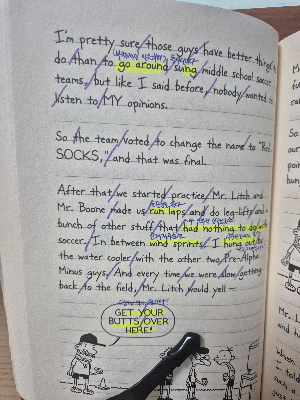 I'm pretty sure those guys have better things to
do than to go around suing middle school soccer
teams, but like I said before, nobody wanted to
listen to MY opinions.
So the team voted to change the name to "Red
SOCKS," and that was final.
After that we started practice. Mr. Litch and
Mr. Boone made us run laps and do leg-lifts and a
bunch of other stuff that had nothing to do with
soccer. In between wind sprints, I hung out by
the water cooler with the other two Pre-Alpha
Minus guys. And every time we were slow getting
back to the field, Mr. Litch would yell—
GET YOUR
BUTTS OVER
HERE!